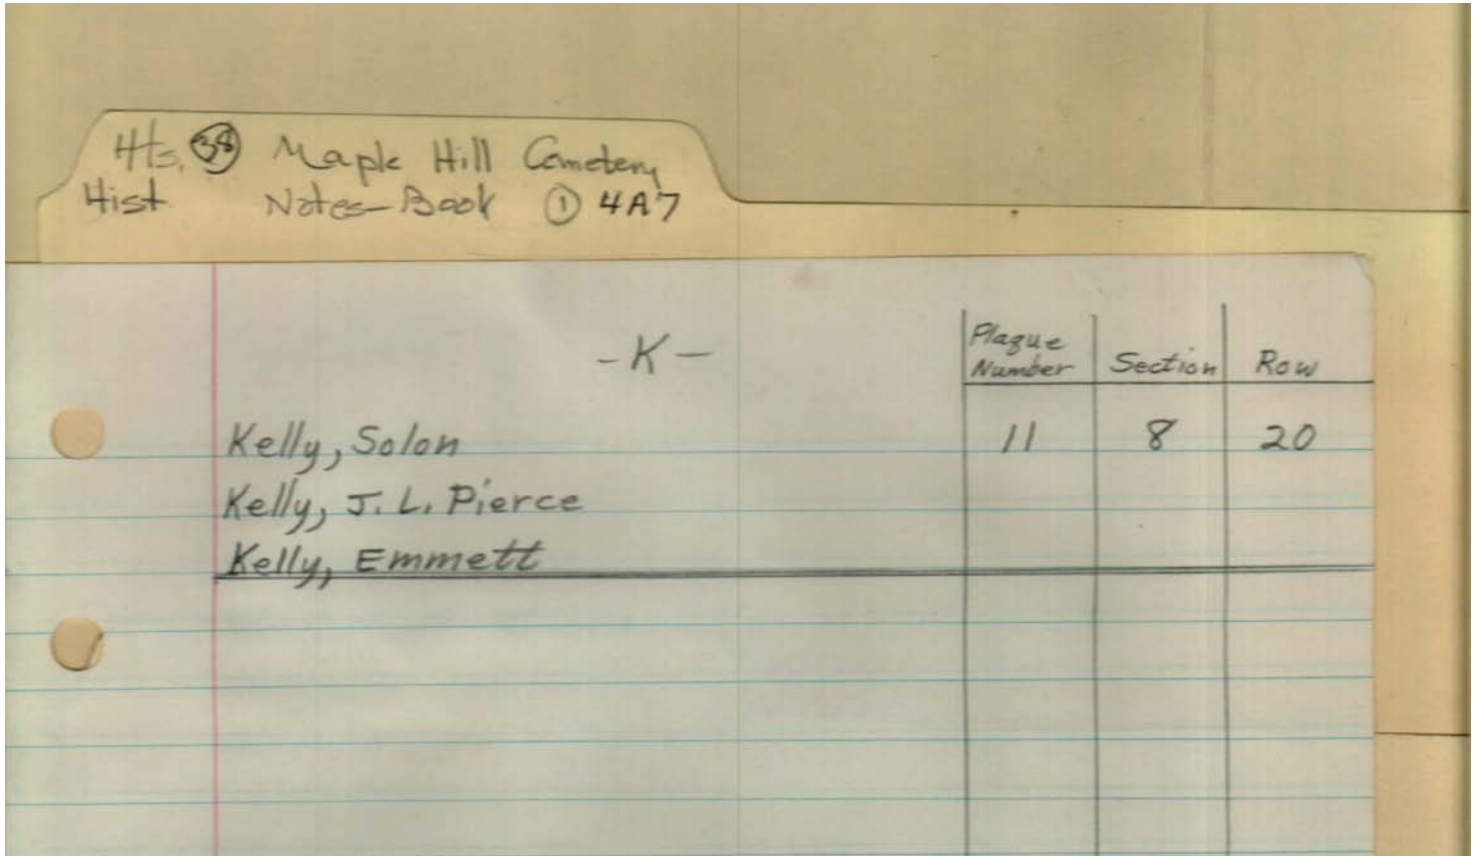 Hts. 38 Maple Hill Cemetery
Hist Notes-Book 1 4A7
-K-
Plaque Number Section Row
Kelly, Solon 11 8 20
Kelly, J. L. Pierce
Kelly, Emmett